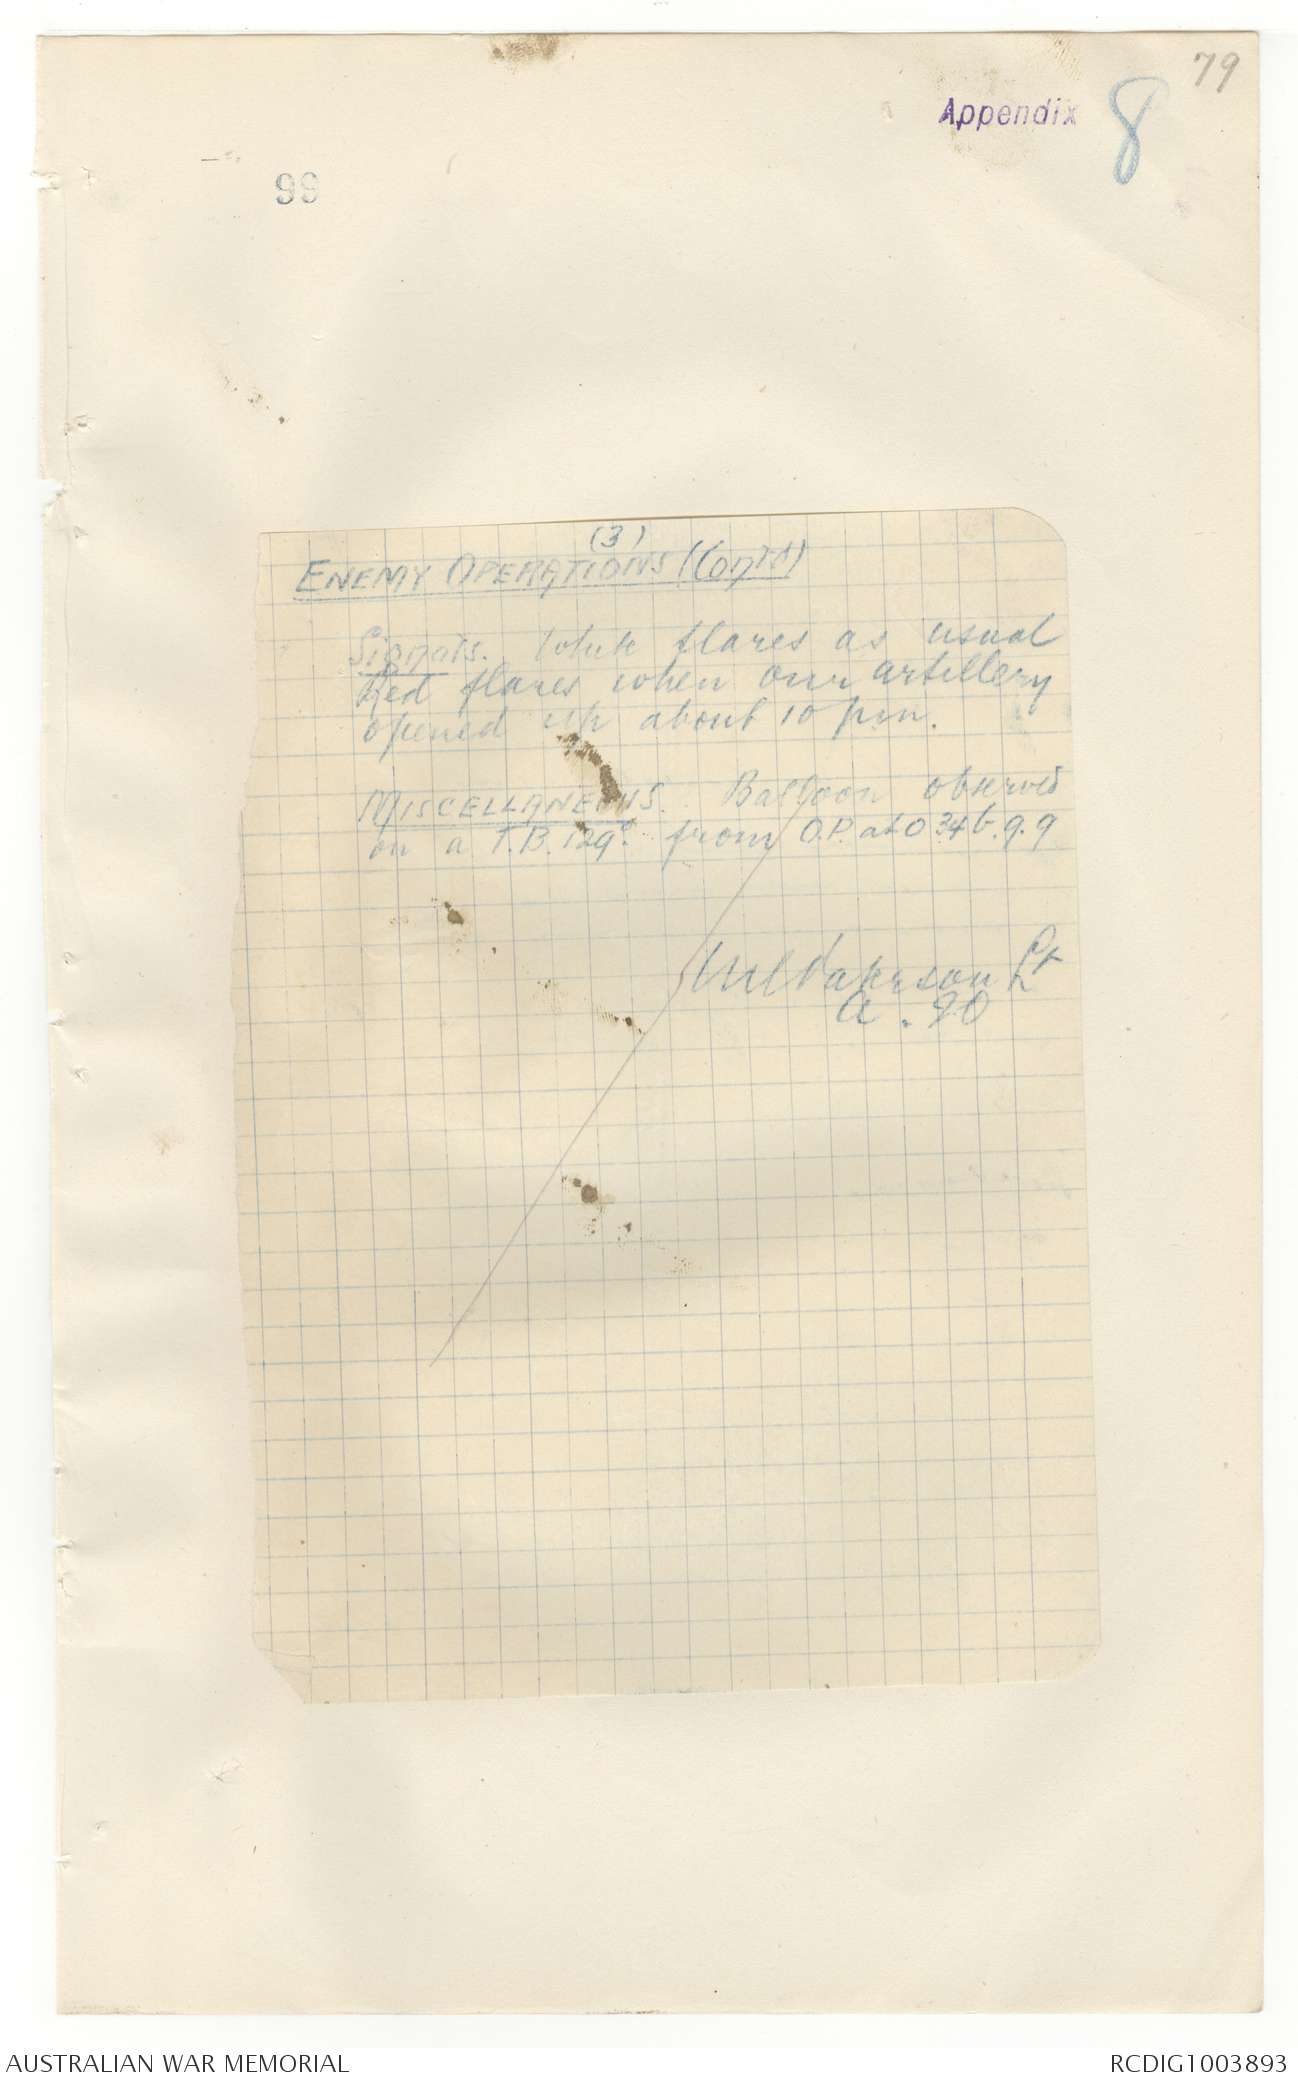 79
Appendix 8
99
(3)
ENEMY OPERATIONS (Contd)
Signals. White flares as usual
Red flares when our artillery
opened up about 10 pm.
MISCELLANEOUS. Balloon observed
on a T.B. 129° from O.P. at O 34 b. 9. 9
Lt
a. 20
AUSTRALIAN WAR MEMORIAL
RCDIG1003893